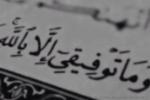 وَمَا تَوْفِيقِيٓ إِلَّا بِٱللَّهِ ۚ